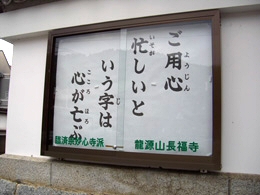 ご用心
ようじん
忙しいと
いそが
いう字は
じ
心が亡ぶ
こころ ほろ
龍源山長福寺
臨済宗妙心寺派